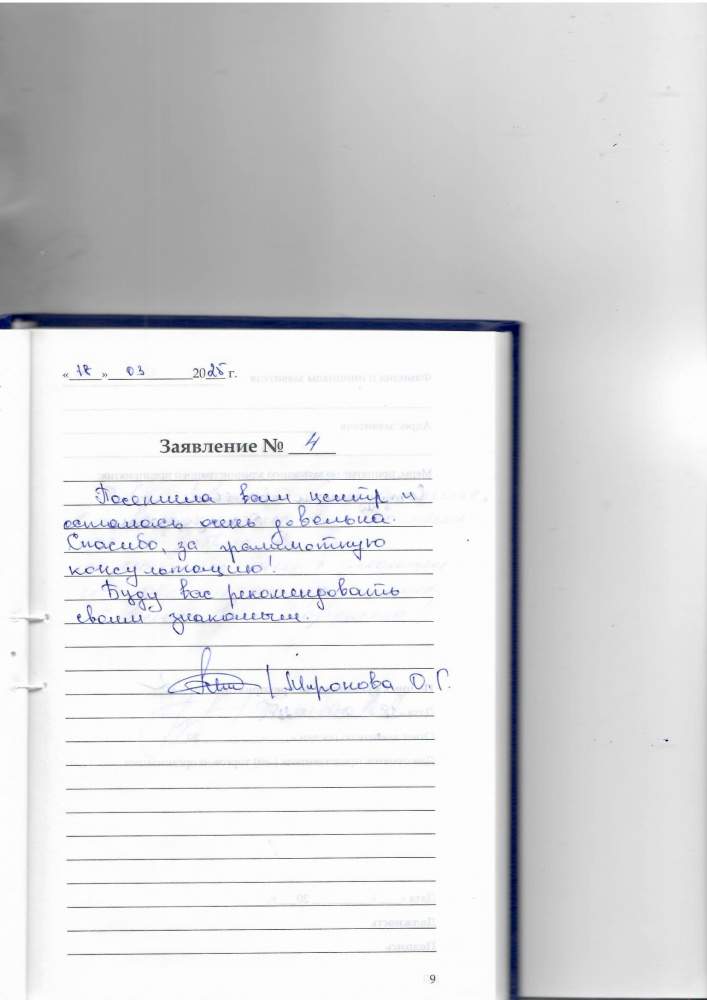 «18» 03 2025 г.
Заявление № 4
Посетила ваш центр и
осталась очень довольна.
Спасибо, за грамотную
консультацию!
Буду вас рекомендовать
своим знакомым.
/ Миронова О.Г.
9